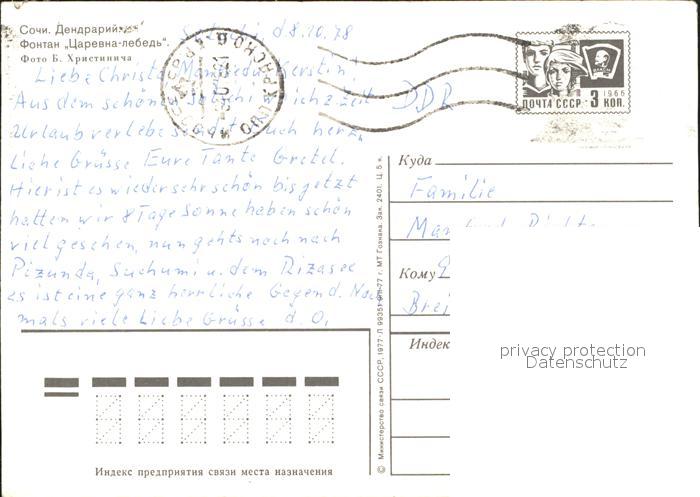 Сочи. Дендрарий.
Фонтан „Царевна-лебедь".
Фото Б. Христинича
d. 8.10.78
Liebe Christa, Manfred u. Kerstin!
Aus dem schönen Sotschi ich z. Zeit
Urlaub verlebe sendet Euch herz-
liche Grüsse Eure Tante Gretel.
Hier ist es wieder sehr schön bis jetzt
hatten wir 8 Tage Sonne haben schön
viel gesehen, nun gehts noch nach
Pizunda, Suchumi u. dem Rizasee
es ist eine ganz herrliche Gegend. Noch
mals viele Liebe Grüsse d. O.
DDR
ПОЧТА СССР 3 КОП.
1966
Куда
Familie
Кому
Индекс
privacy protection
Datenschutz
Индекс предприятия связи места назначения
© Министерство связи СССР, 1977. Л 99351 77 г. МТ Гознака. Зак. 2401. Ц. 5 к.